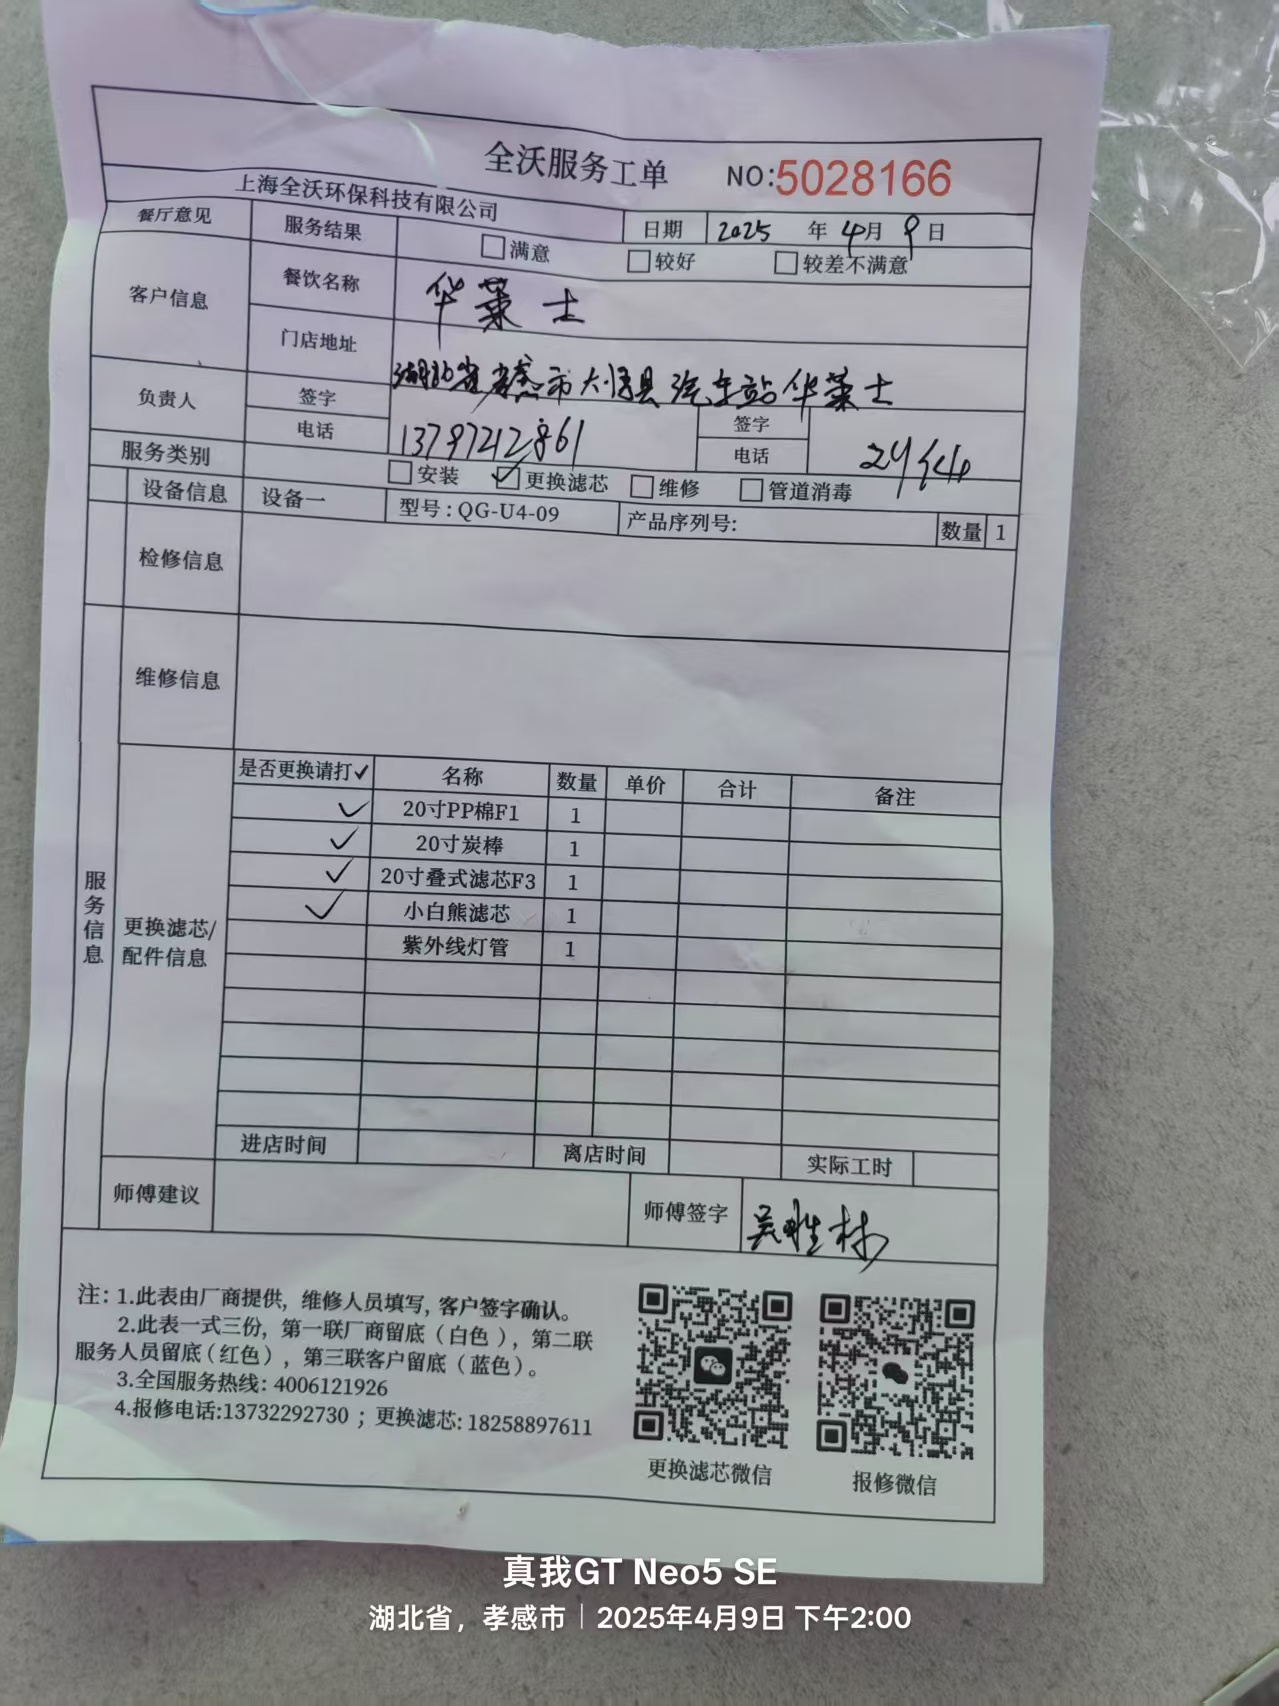 全沃服务工单 NO:5028166
上海全沃环保科技有限公司 日期 2025 年 4月 9日
餐厅意见 服务结果 满意 较好 较差不满意
客户信息 餐饮名称 华莱士
门店地址 湖北省孝感市大悟县汽车站华莱士
负责人 签字 签字
电话 13797212861 电话
服务类别 安装 ✓更换滤芯 维修 管道消毒
设备信息 设备一 型号: QG-U4-09 产品序列号: 数量 1
检修信息
维修信息
服务信息
更换滤芯/配件信息
是否更换请打✓ 名称 数量 单价 合计 备注
✓ 20寸PP棉F1 1
✓ 20寸炭棒 1
✓ 20寸叠式滤芯F3 1
✓ 小白熊滤芯 1
紫外线灯管 1
进店时间 离店时间 实际工时
师傅建议 师傅签字
注: 1.此表由厂商提供, 维修人员填写, 客户签字确认。
2.此表一式三份, 第一联厂商留底(白色), 第二联
服务人员留底(红色), 第三联客户留底(蓝色)。
3.全国服务热线: 4006121926
4.报修电话:13732292730 ; 更换滤芯: 18258897611
更换滤芯微信 报修微信
真我GT Neo5 SE
湖北省, 孝感市 | 2025年4月9日 下午2:00